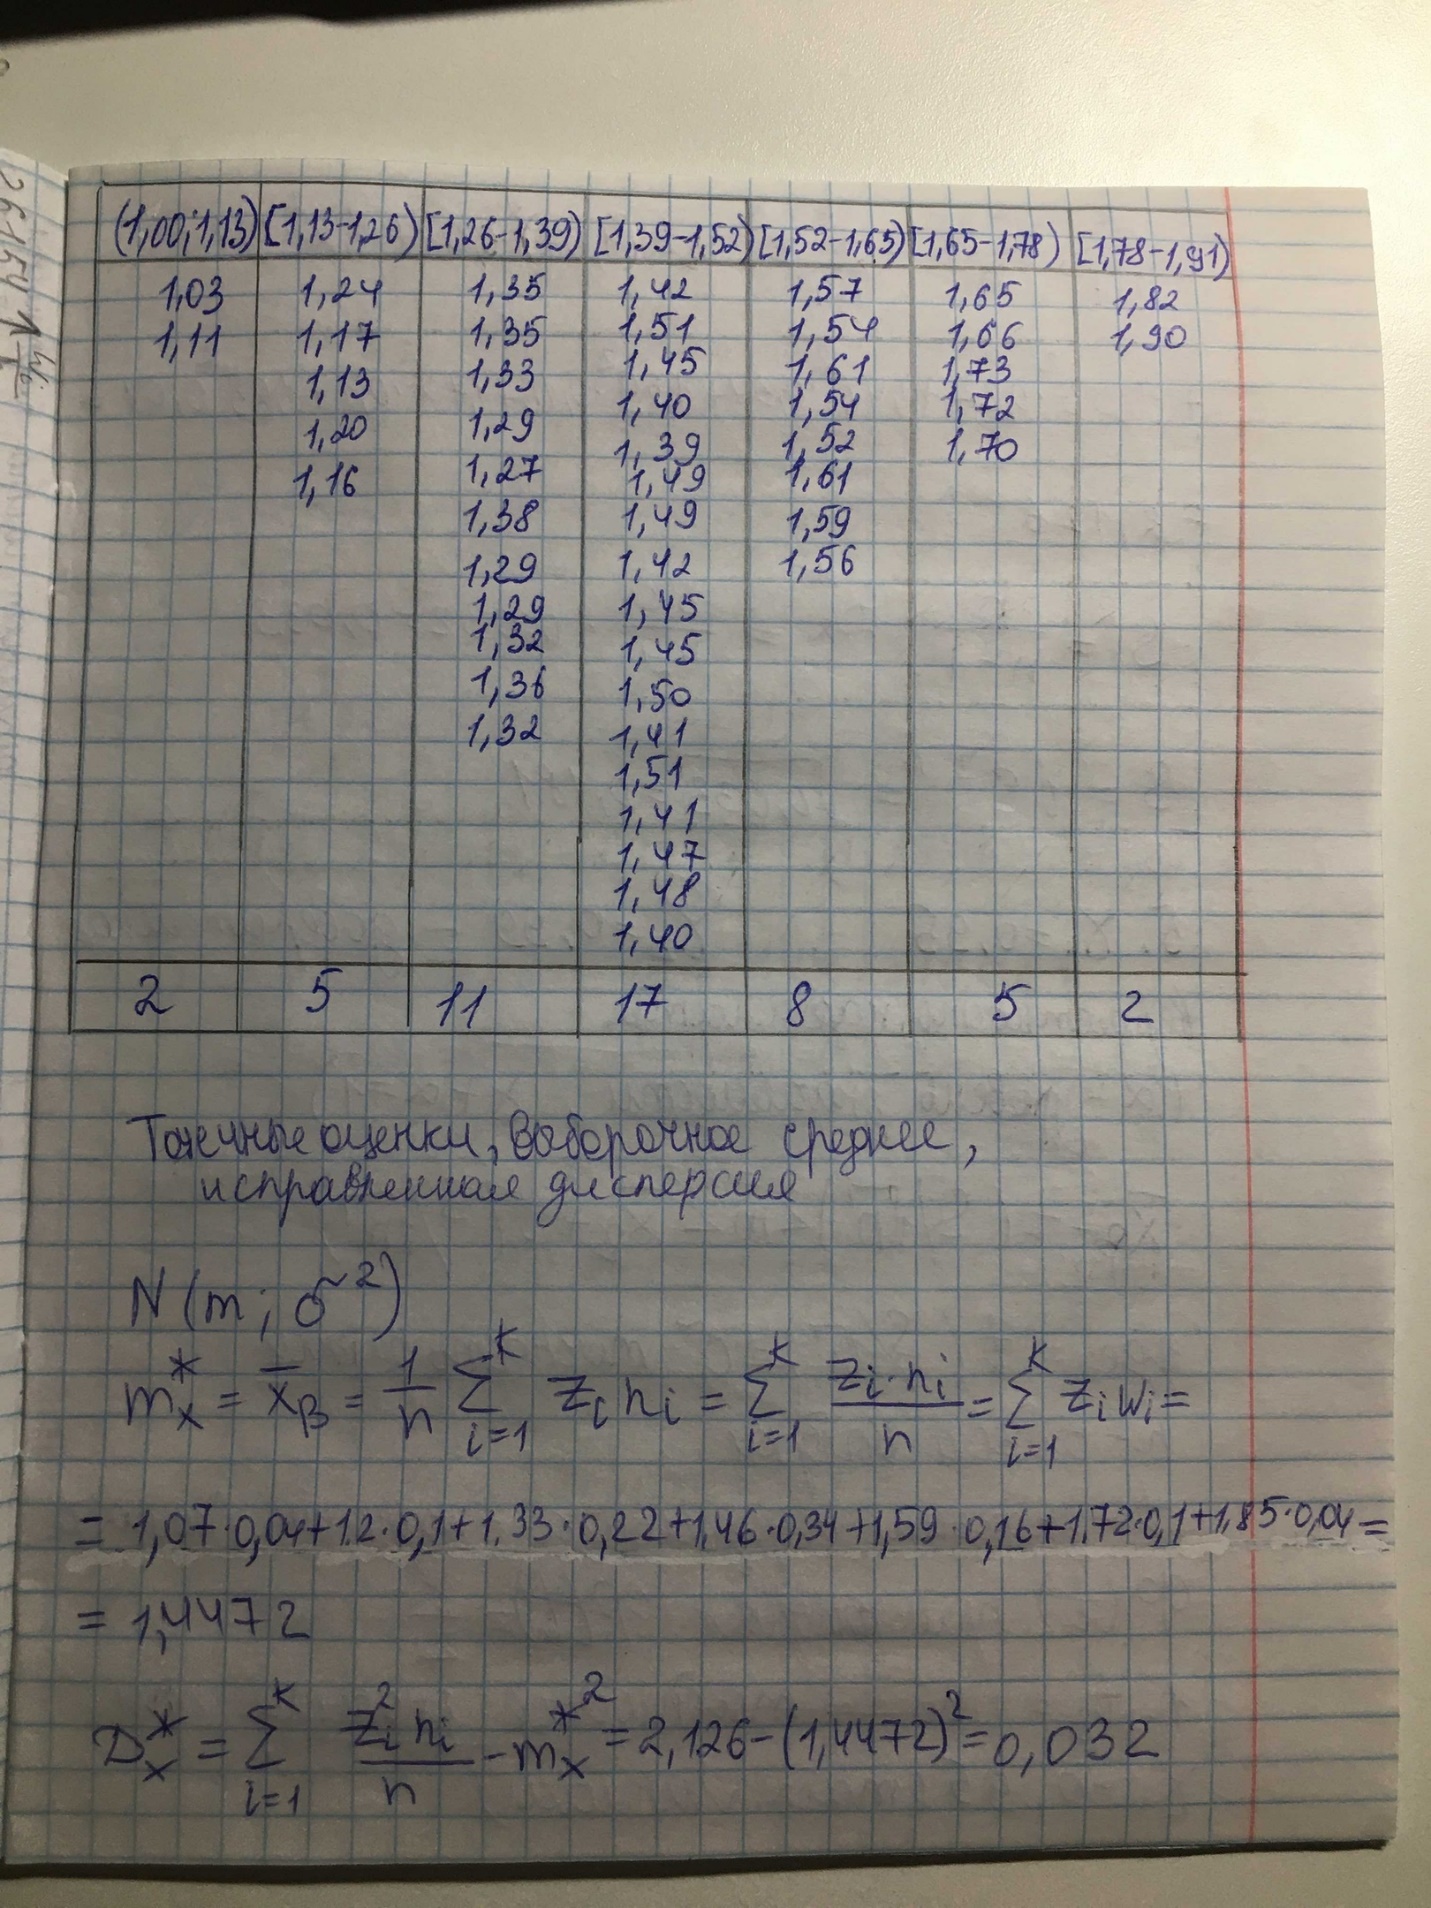 (1,00;1,13) [1,13-1,26) [1,26-1,39) [1,39-1,52) [1,52-1,65) [1,65-1,78) [1,78-1,91)
1,03 1,24 1,35 1,42 1,57 1,65 1,82
1,11 1,17 1,35 1,51 1,54 1,66 1,90
1,13 1,33 1,45 1,61 1,73
1,20 1,29 1,40 1,54 1,72
1,16 1,27 1,39 1,52 1,70
1,38 1,49 1,61
1,29 1,49 1,59
1,29 1,42 1,56
1,32 1,45
1,36 1,45
1,32 1,50
1,41
1,51
1,41
1,47
1,48
1,40
2 5 11 17 8 5 2
Точечные оценки, Выборочное среднее,
исправленная дисперсия
N(m; σ²)
m*ₓ = x̄_B = 1/n ∑_{i=1}^{K} zᵢ nᵢ = ∑_{i=1}^{K} zᵢ·nᵢ/n = ∑_{i=1}^{K} zᵢ wᵢ =
= 1,07·0,04+1.2·0,1+1.33·0,22+1,46·0,34+1,59·0,16+1.72·0,1+1.85·0,04=
= 1,4472
D*ₓ = ∑_{i=1}^{K} zᵢ² nᵢ/n - m*ₓ² = 2,126-(1,4472)² = 0,032